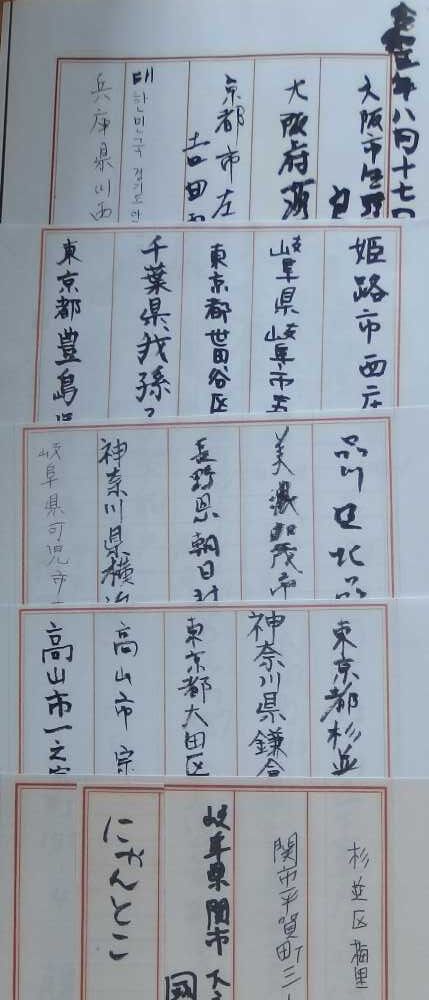 年八月十七日
大阪市生野
大阪府
京都市左
吉田
대한민국 경기도 안
兵庫県川西
姫路市西庄
岐阜県岐阜市
東京都世田谷区
千葉県我孫子
東京都豊島
品川区北品
美濃加茂市
長野県朝日村
神奈川県横浜
岐阜県可児市
東京都杉並
神奈川県鎌倉
東京都大田区
高山市宗
高山市一之宮
杉並区梅里
関市平賀町三
岐阜県関市下之
にゃんとこ